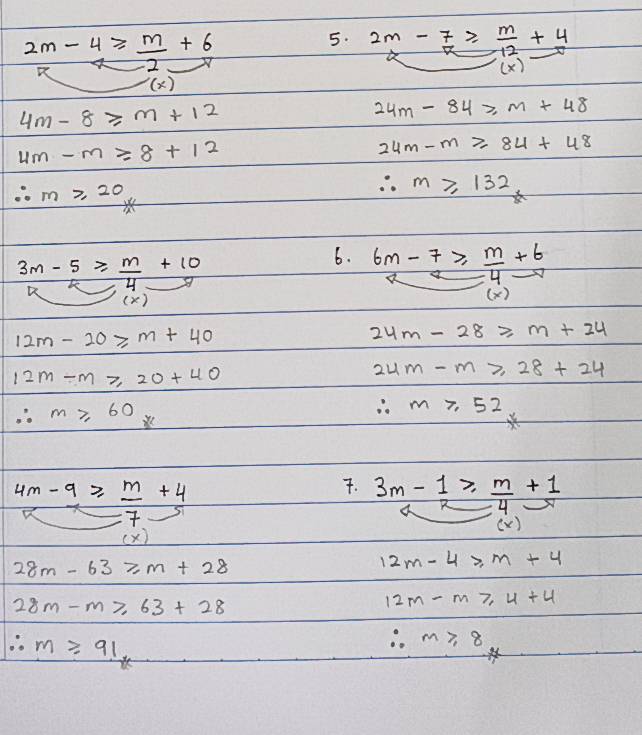 2m - 4 ≥ m/2 + 6
(x)
4m - 8 ≥ m + 12
4m - m ≥ 8 + 12
∴ m ≥ 20
3m - 5 ≥ m/4 + 10
(x)
12m - 20 ≥ m + 40
12m - m ≥ 20 + 40
∴ m ≥ 60
4m - 9 ≥ m/7 + 4
(x)
28m - 63 ≥ m + 28
28m - m ≥ 63 + 28
∴ m ≥ 91
5. 2m - 7 ≥ m/12 + 4
(x)
24m - 84 ≥ m + 48
24m - m ≥ 84 + 48
∴ m ≥ 132
6. 6m - 7 ≥ m/4 + 6
(x)
24m - 28 ≥ m + 24
24m - m ≥ 28 + 24
∴ m ≥ 52
7. 3m - 1 ≥ m/4 + 1
(x)
12m - 4 ≥ m + 4
12m - m ≥ 4 + 4
∴ m ≥ 8